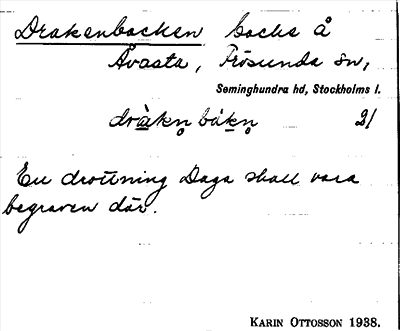 Drakenbacken backe å
Åvasta, Frösunda sn,
Seminghundra hd, Stockholms l.
dràkn̥ bákn̥ 21
En drottning Daga skall vara
begraven där.
KARIN OTTOSSON 1938.